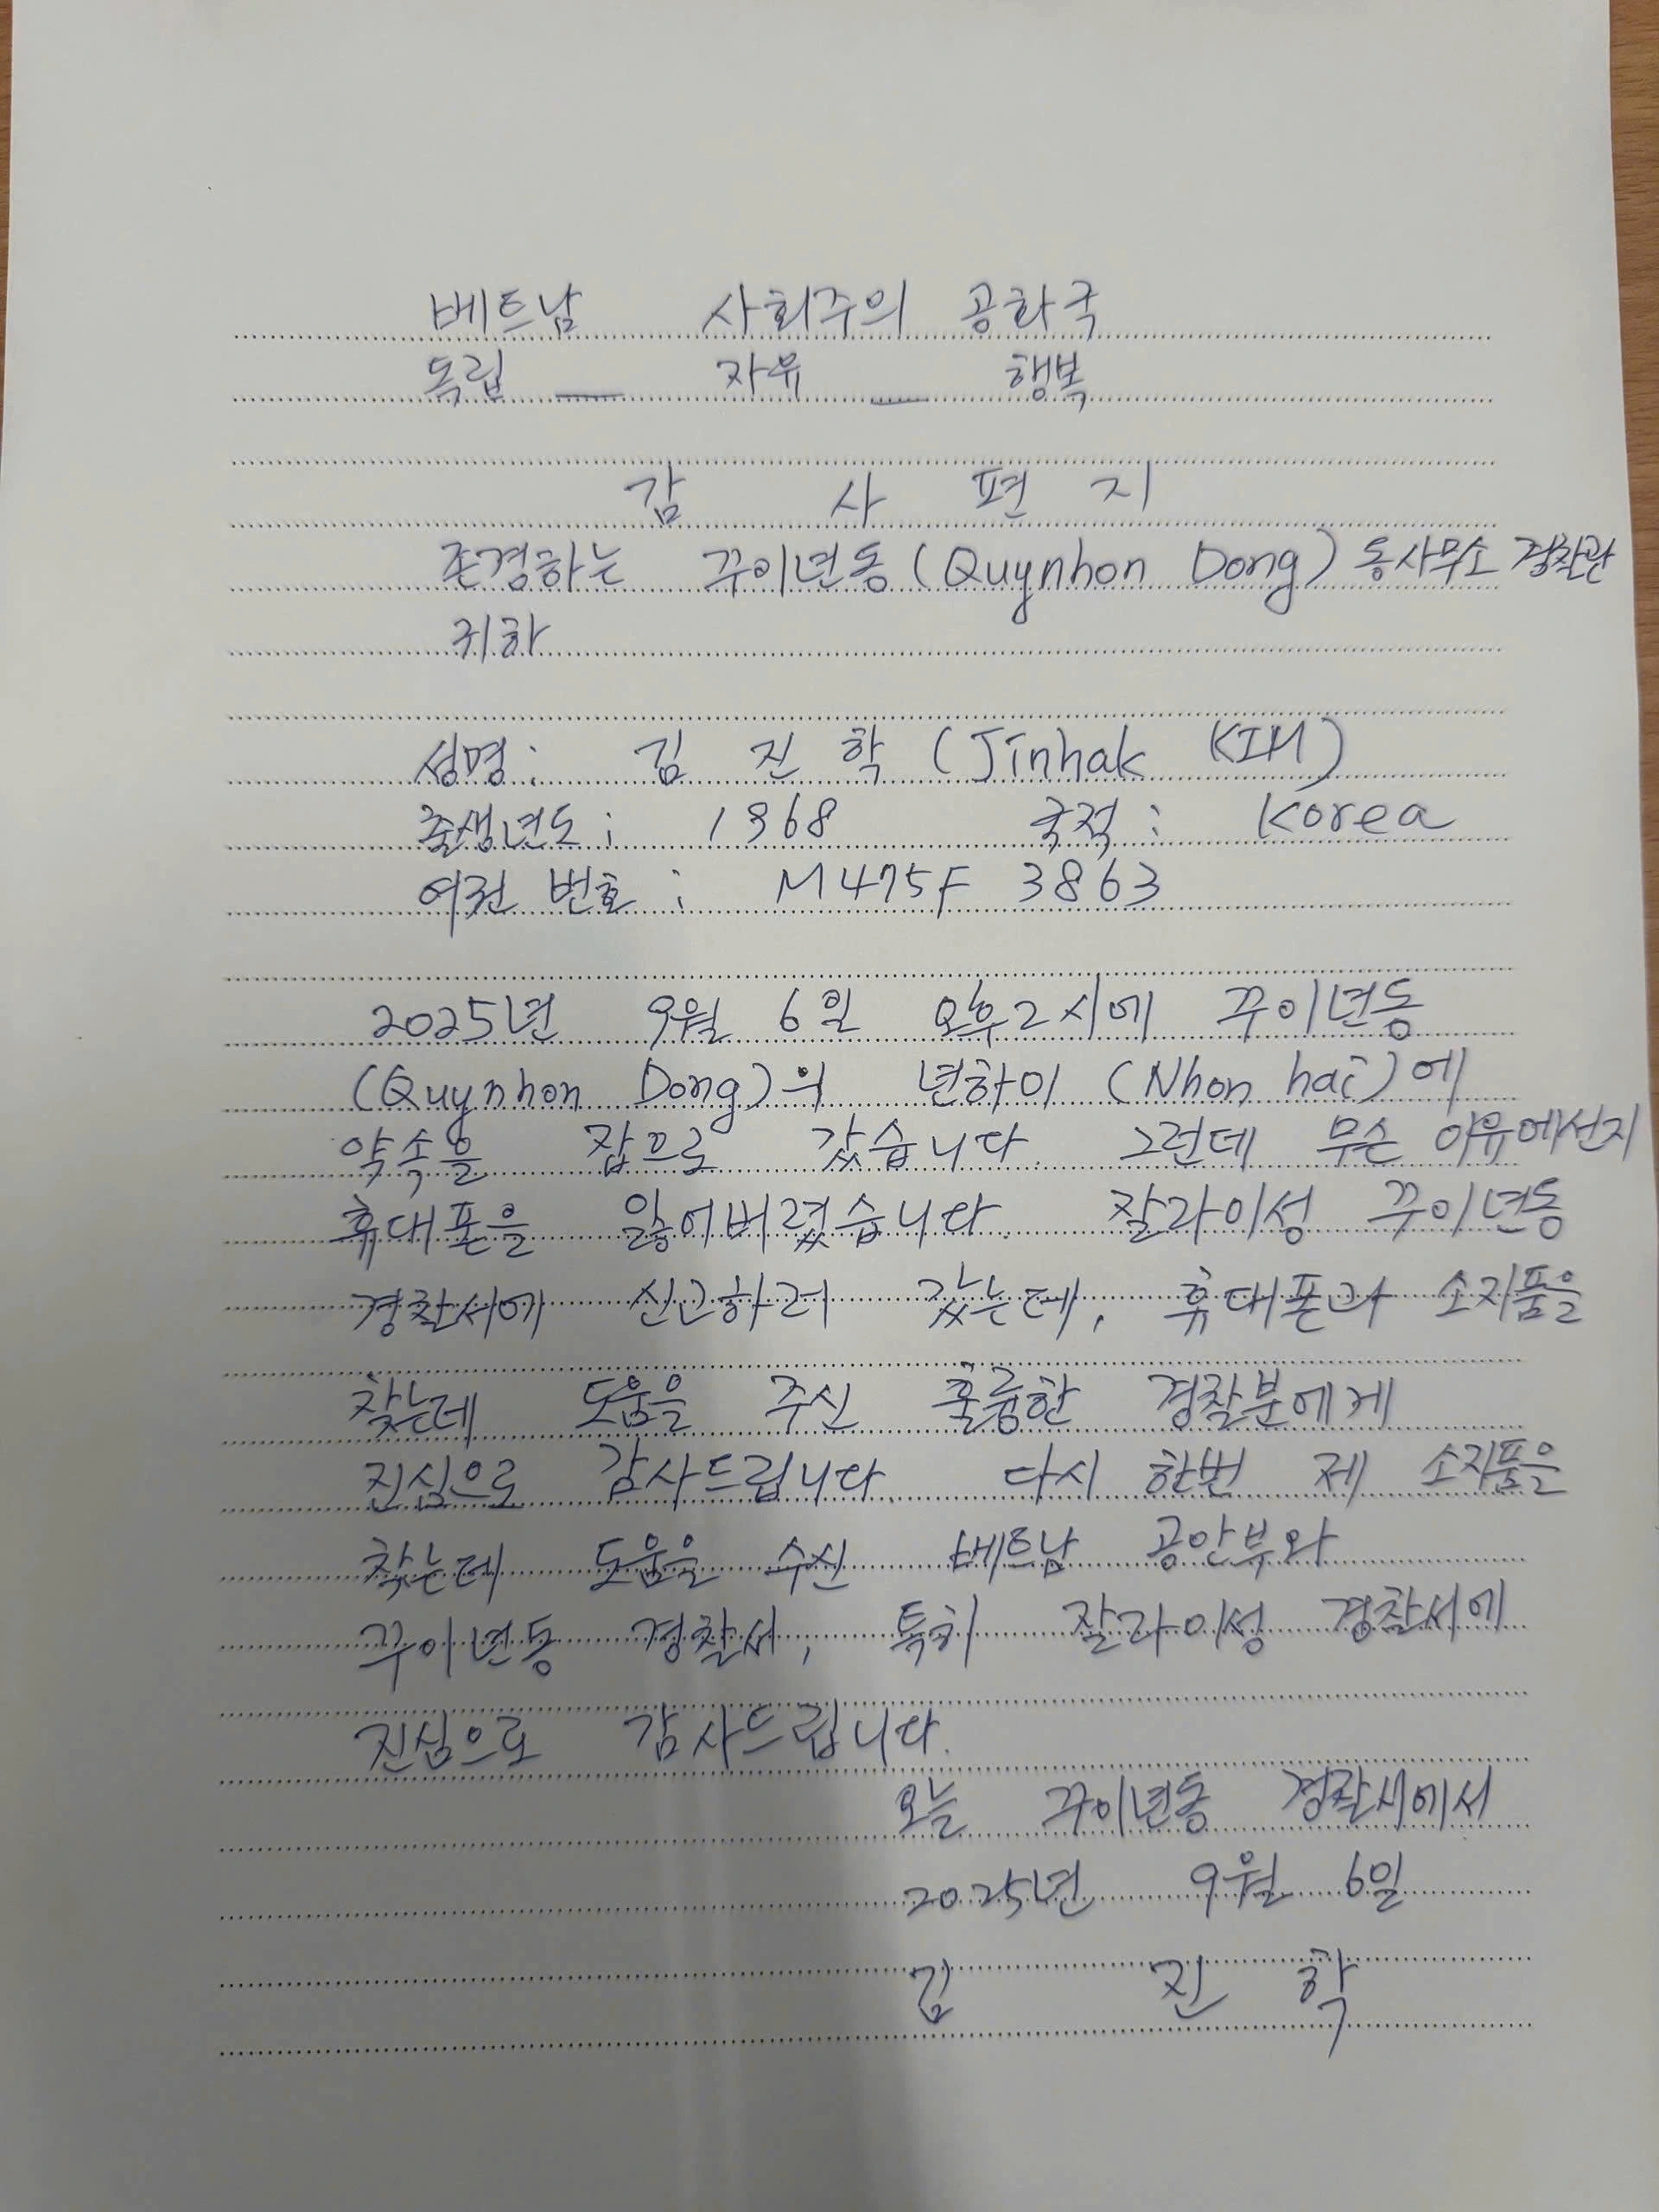 베트남 사회주의 공화국
독립 _ 자유 _ 행복
감 사 편 지
존경하는 꾸이년동 (Quynhon Dong) 동사무소 경찰관
귀하
성명 : 김 진 학 (Jinhak KIM)
출생년도 : 1968 국적 : Korea
여권 번호 : M475F 3863
2025년 9월 6일 오후2시에 꾸이년동
(Quynhon Dong)의 년하이 (Nhon hai)에
약속을 잡으로 갔습니다. 그런데 무슨 이유에선지
휴대폰을 잃어버렸습니다. 잘라이성 꾸이년동
경찰서에 신고하러 갔는데, 휴대폰과 소지품을
찾는데 도움을 주신 훌륭한 경찰분에게
진심으로 감사드립니다. 다시 한번 제 소지품을
찾는데 도움을 주신 베트남 공안부와
꾸이년동 경찰서, 특히 잘라이성 경찰서에
진심으로 감사드립니다.
오늘 꾸이년동 경찰서에서
2025년 9월 6일
김 진 학